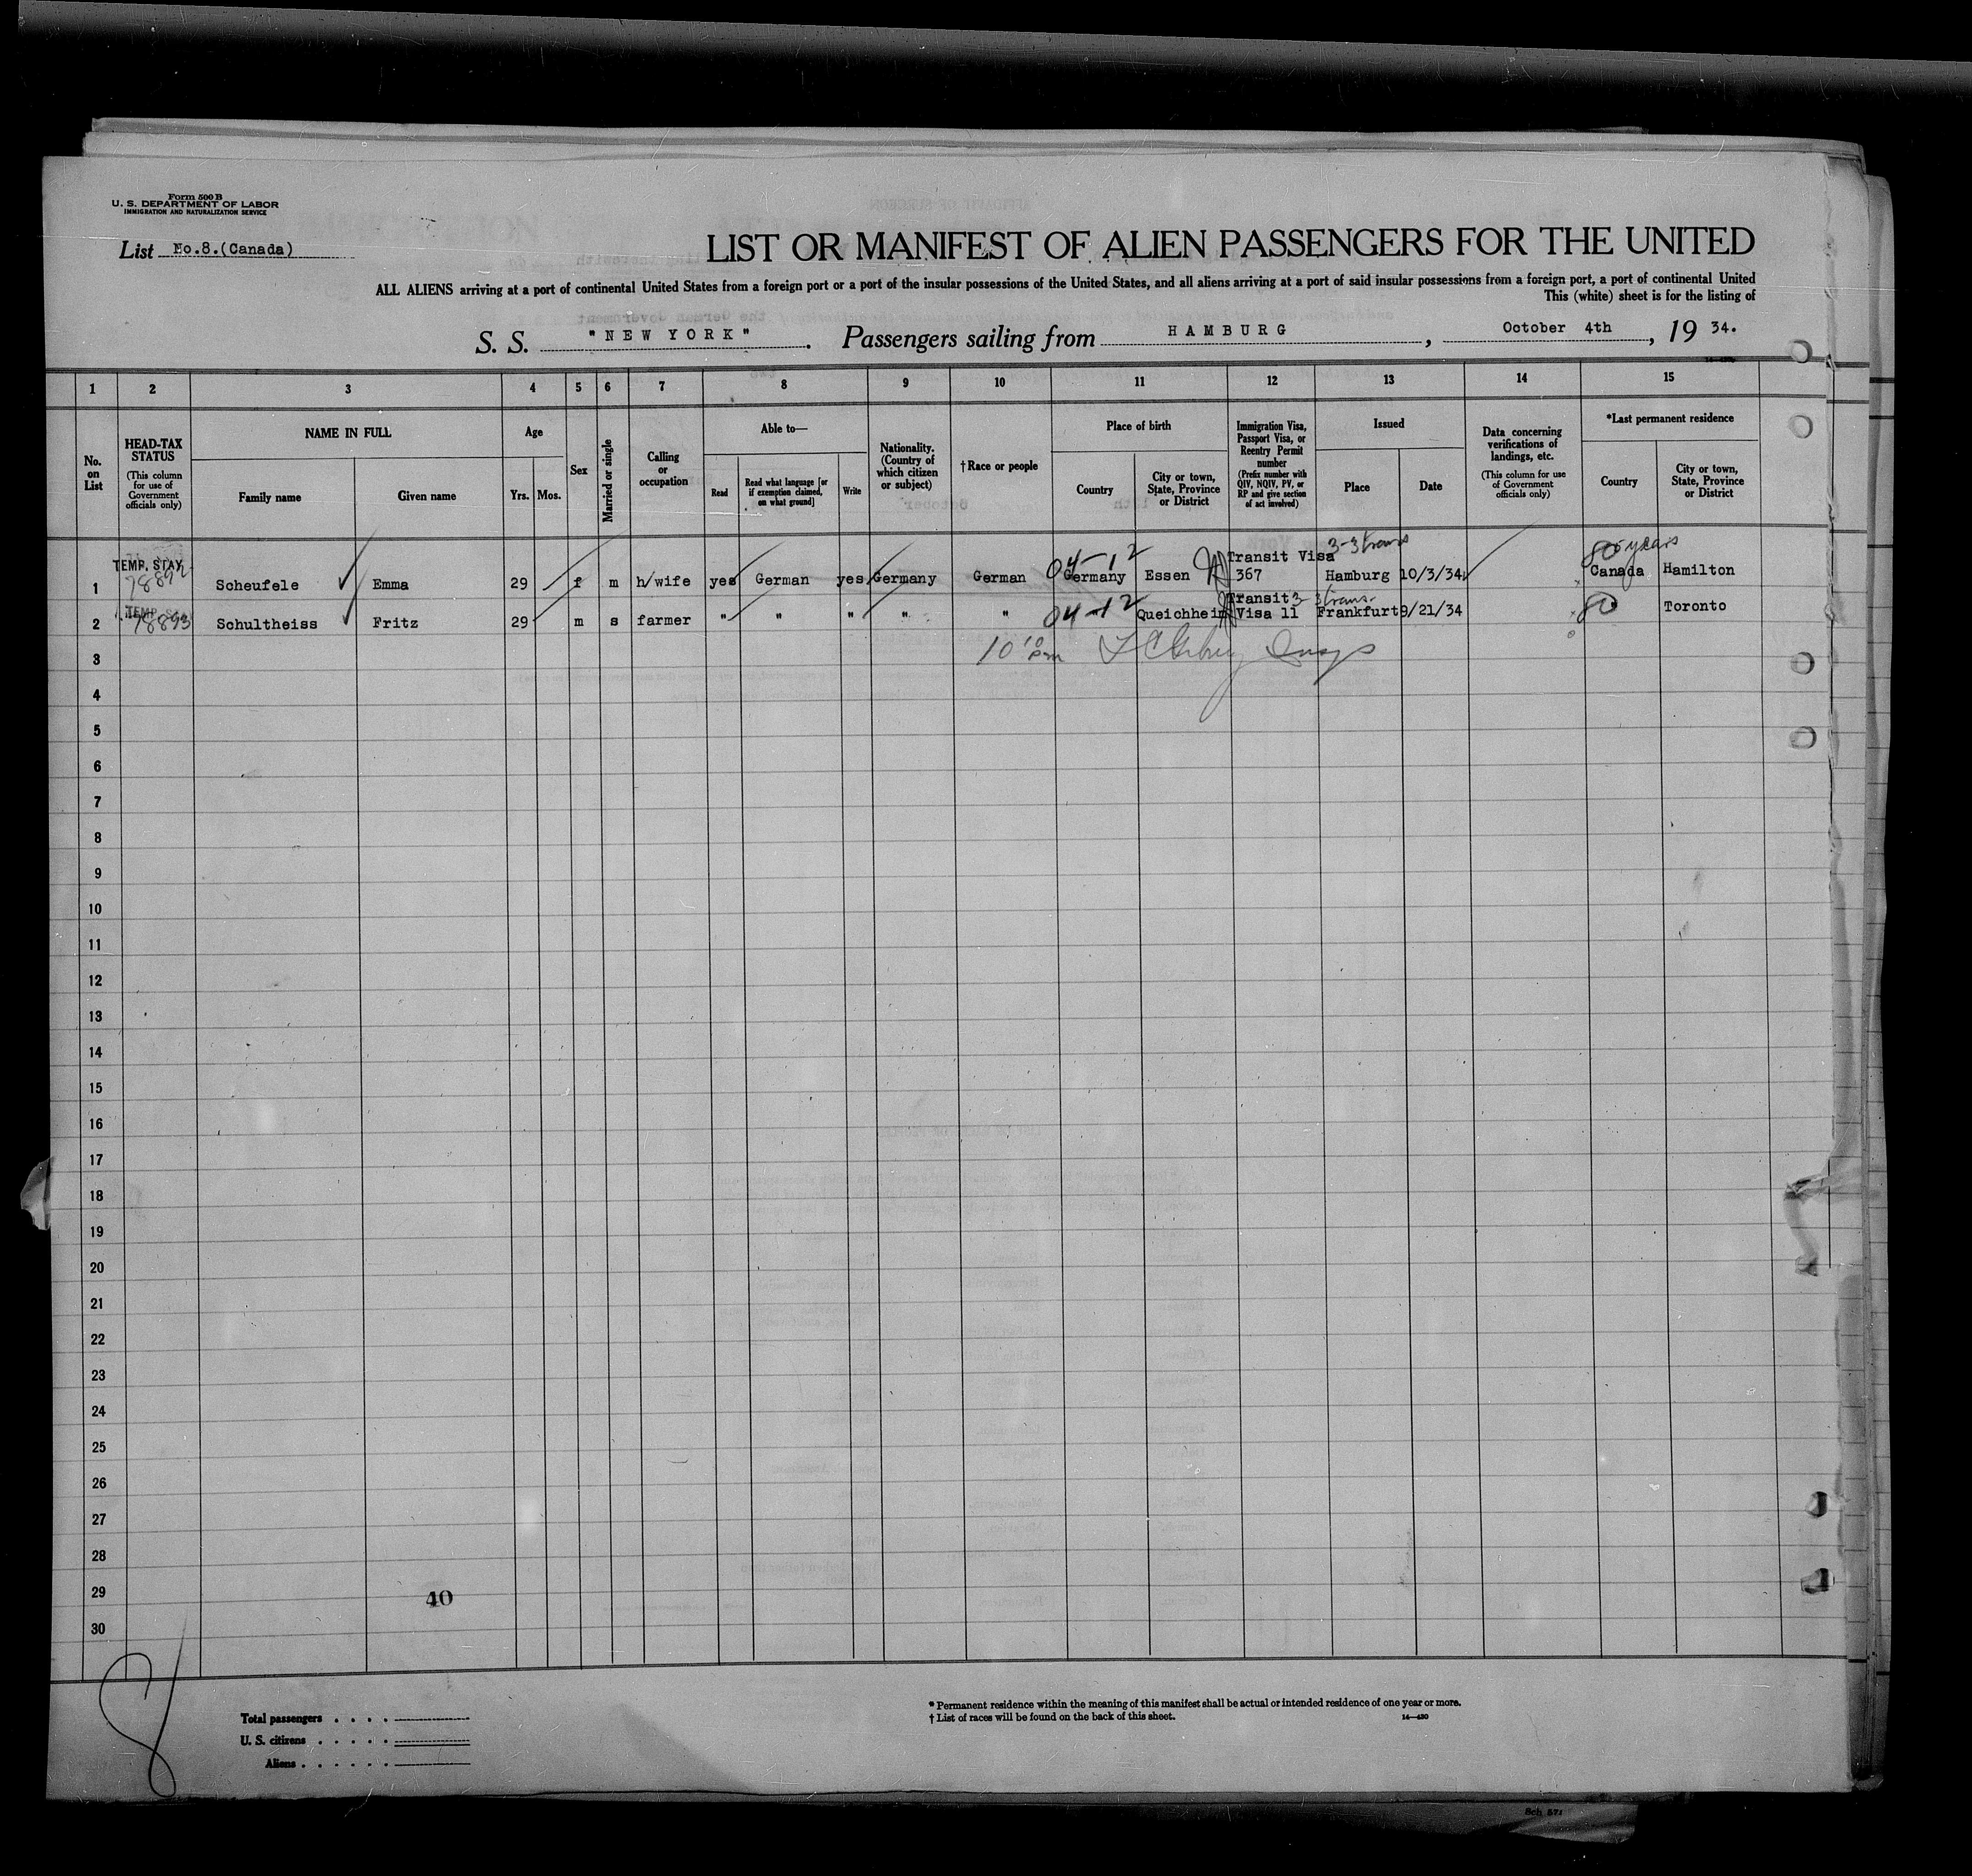 Form 500 B
U. S. DEPARTMENT OF LABOR
IMMIGRATION AND NATURALIZATION SERVICE
List No.8.(Canada)
LIST OR MANIFEST OF ALIEN PASSENGERS FOR THE UNITED
ALL ALIENS arriving at a port of continental United States from a foreign port or a port of the insular possessions of the United States, and all aliens arriving at a port of said insular possessions from a foreign port, a port of continental United
This (white) sheet is for the listing of
S. S. "NEW YORK". Passengers sailing from HAMBURG, October 4th, 1934.
1 2 3 4 5 6 7 8 9 10 11 12 13 14 15
No. on List
HEAD-TAX STATUS
(This column for use of Government officials only)
NAME IN FULL
Family name
Given name
Age
Yrs. Mos.
Sex
Married or single
Calling or occupation
Able to—
Read
Read what language [or if exemption claimed, on what ground]
Write
Nationality. (Country of which citizen or subject)
†Race or people
Place of birth
Country
City or town, State, Province or District
Immigration Visa, Passport Visa, or Reentry Permit number
(Prefix number with QIV, NQIV, PV, or RP and give section of act involved)
Issued
Place
Date
Data concerning verifications of landings, etc.
(This column for use of Government officials only)
*Last permanent residence
Country
City or town, State, Province or District
1 TEMP. STAY 78892 Scheufele Emma 29 f m h/wife yes German yes Germany German 04-12 Germany Essen Transit Visa 367 3-3 trans Hamburg 10/3/34 80 5 years Canada Hamilton
2 TEMP. 78893 Schultheiss Fritz 29 m s farmer " " " " " 04-12 Queichheim Transit Visa 11 3-3 trans. Frankfurt 9/21/34 80 Toronto
3 10 10 pm
4
5
6
7
8
9
10
11
12
13
14
15
16
17
18
19
20
21
22
23
24
25
26
27
28
29 40
30
8
Total passengers . . . .
U. S. citizens . . . . .
Aliens . . . . . .
* Permanent residence within the meaning of this manifest shall be actual or intended residence of one year or more.
† List of races will be found on the back of this sheet.
14—430
Sch 571